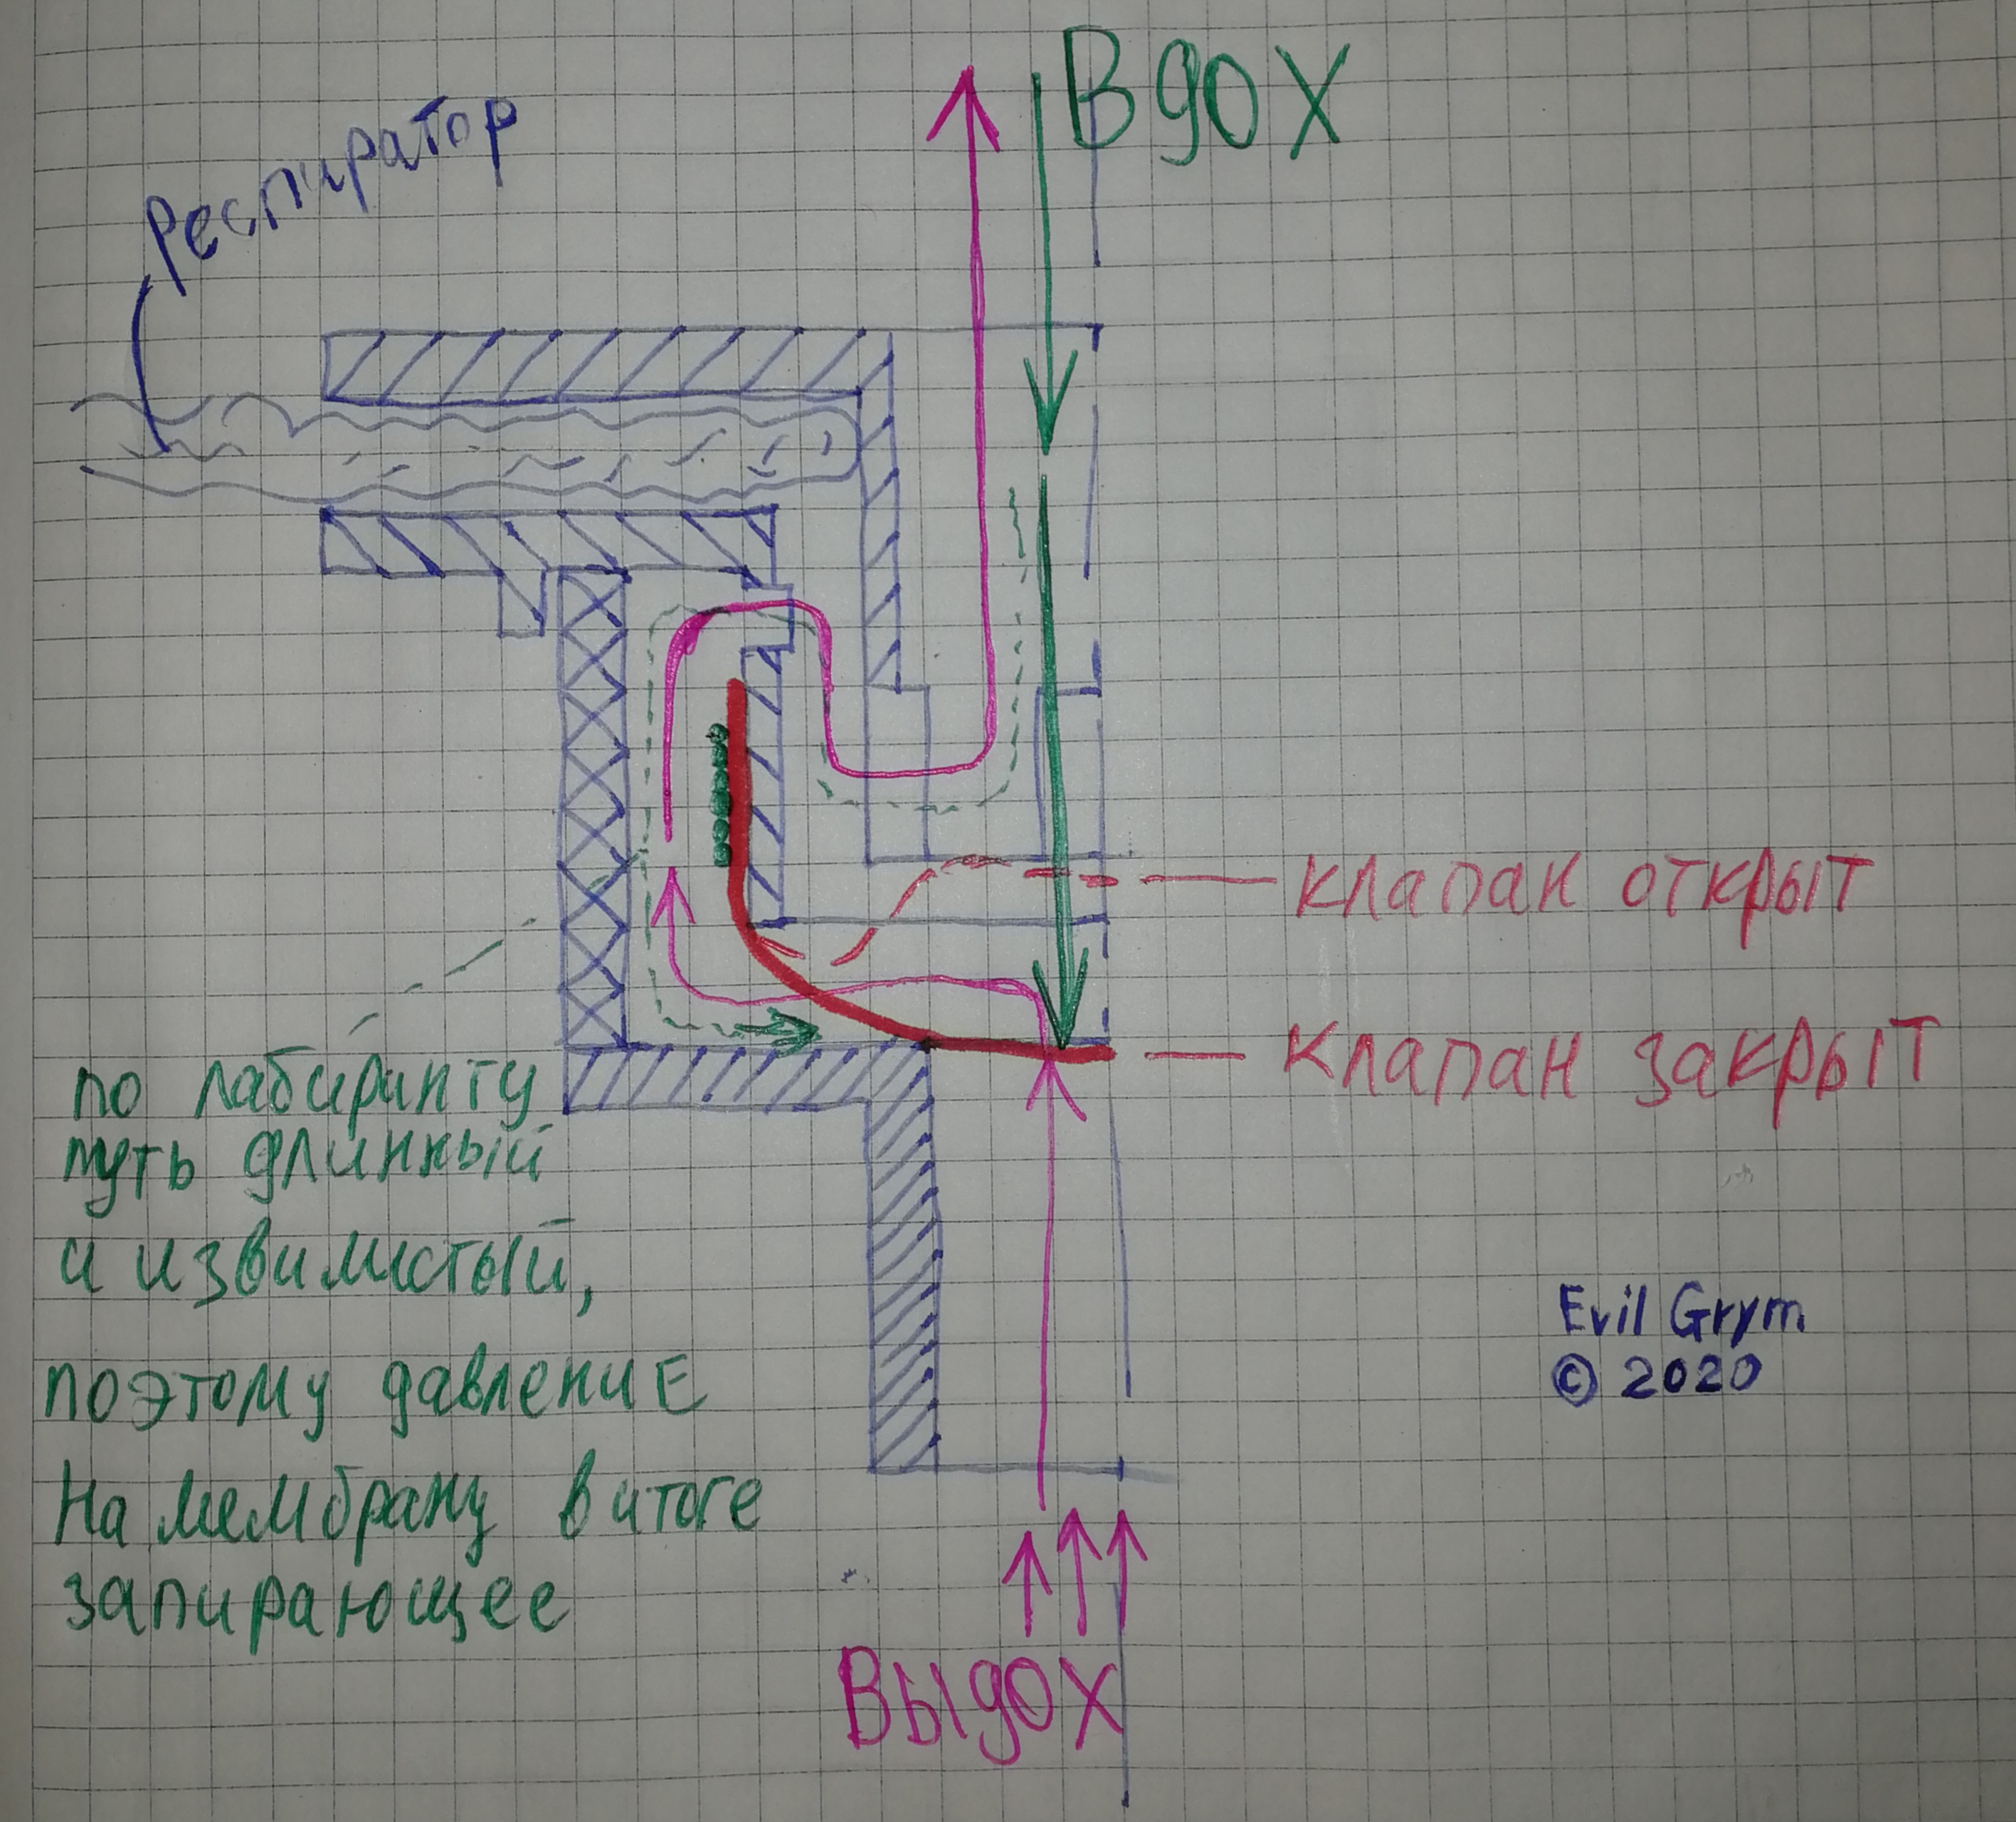 Вдох
респиратор
клапан открыт
клапан закрыт
по лабиринту
путь длинный
и извилистый,
поэтому давление
на мембрану в итоге
запирающее
Evil Grym
© 2020
Выдох